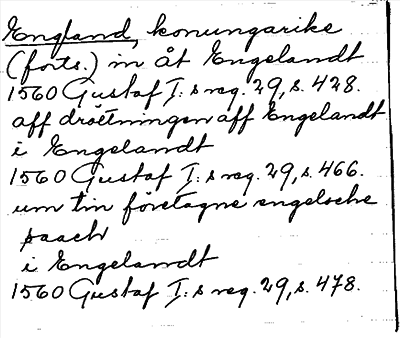 England, konungarike
(forts.) in åt Engelandt
1560 Gustaf I:s reg. 29, s. 428.
aff drottningen aff Engelandt
i Engelandt
1560 Gustaf I:s reg. 29, s. 466.
um tin företagne engelsche
saach
i Engelandt
1560 Gustaf I:s reg. 29, s. 478.